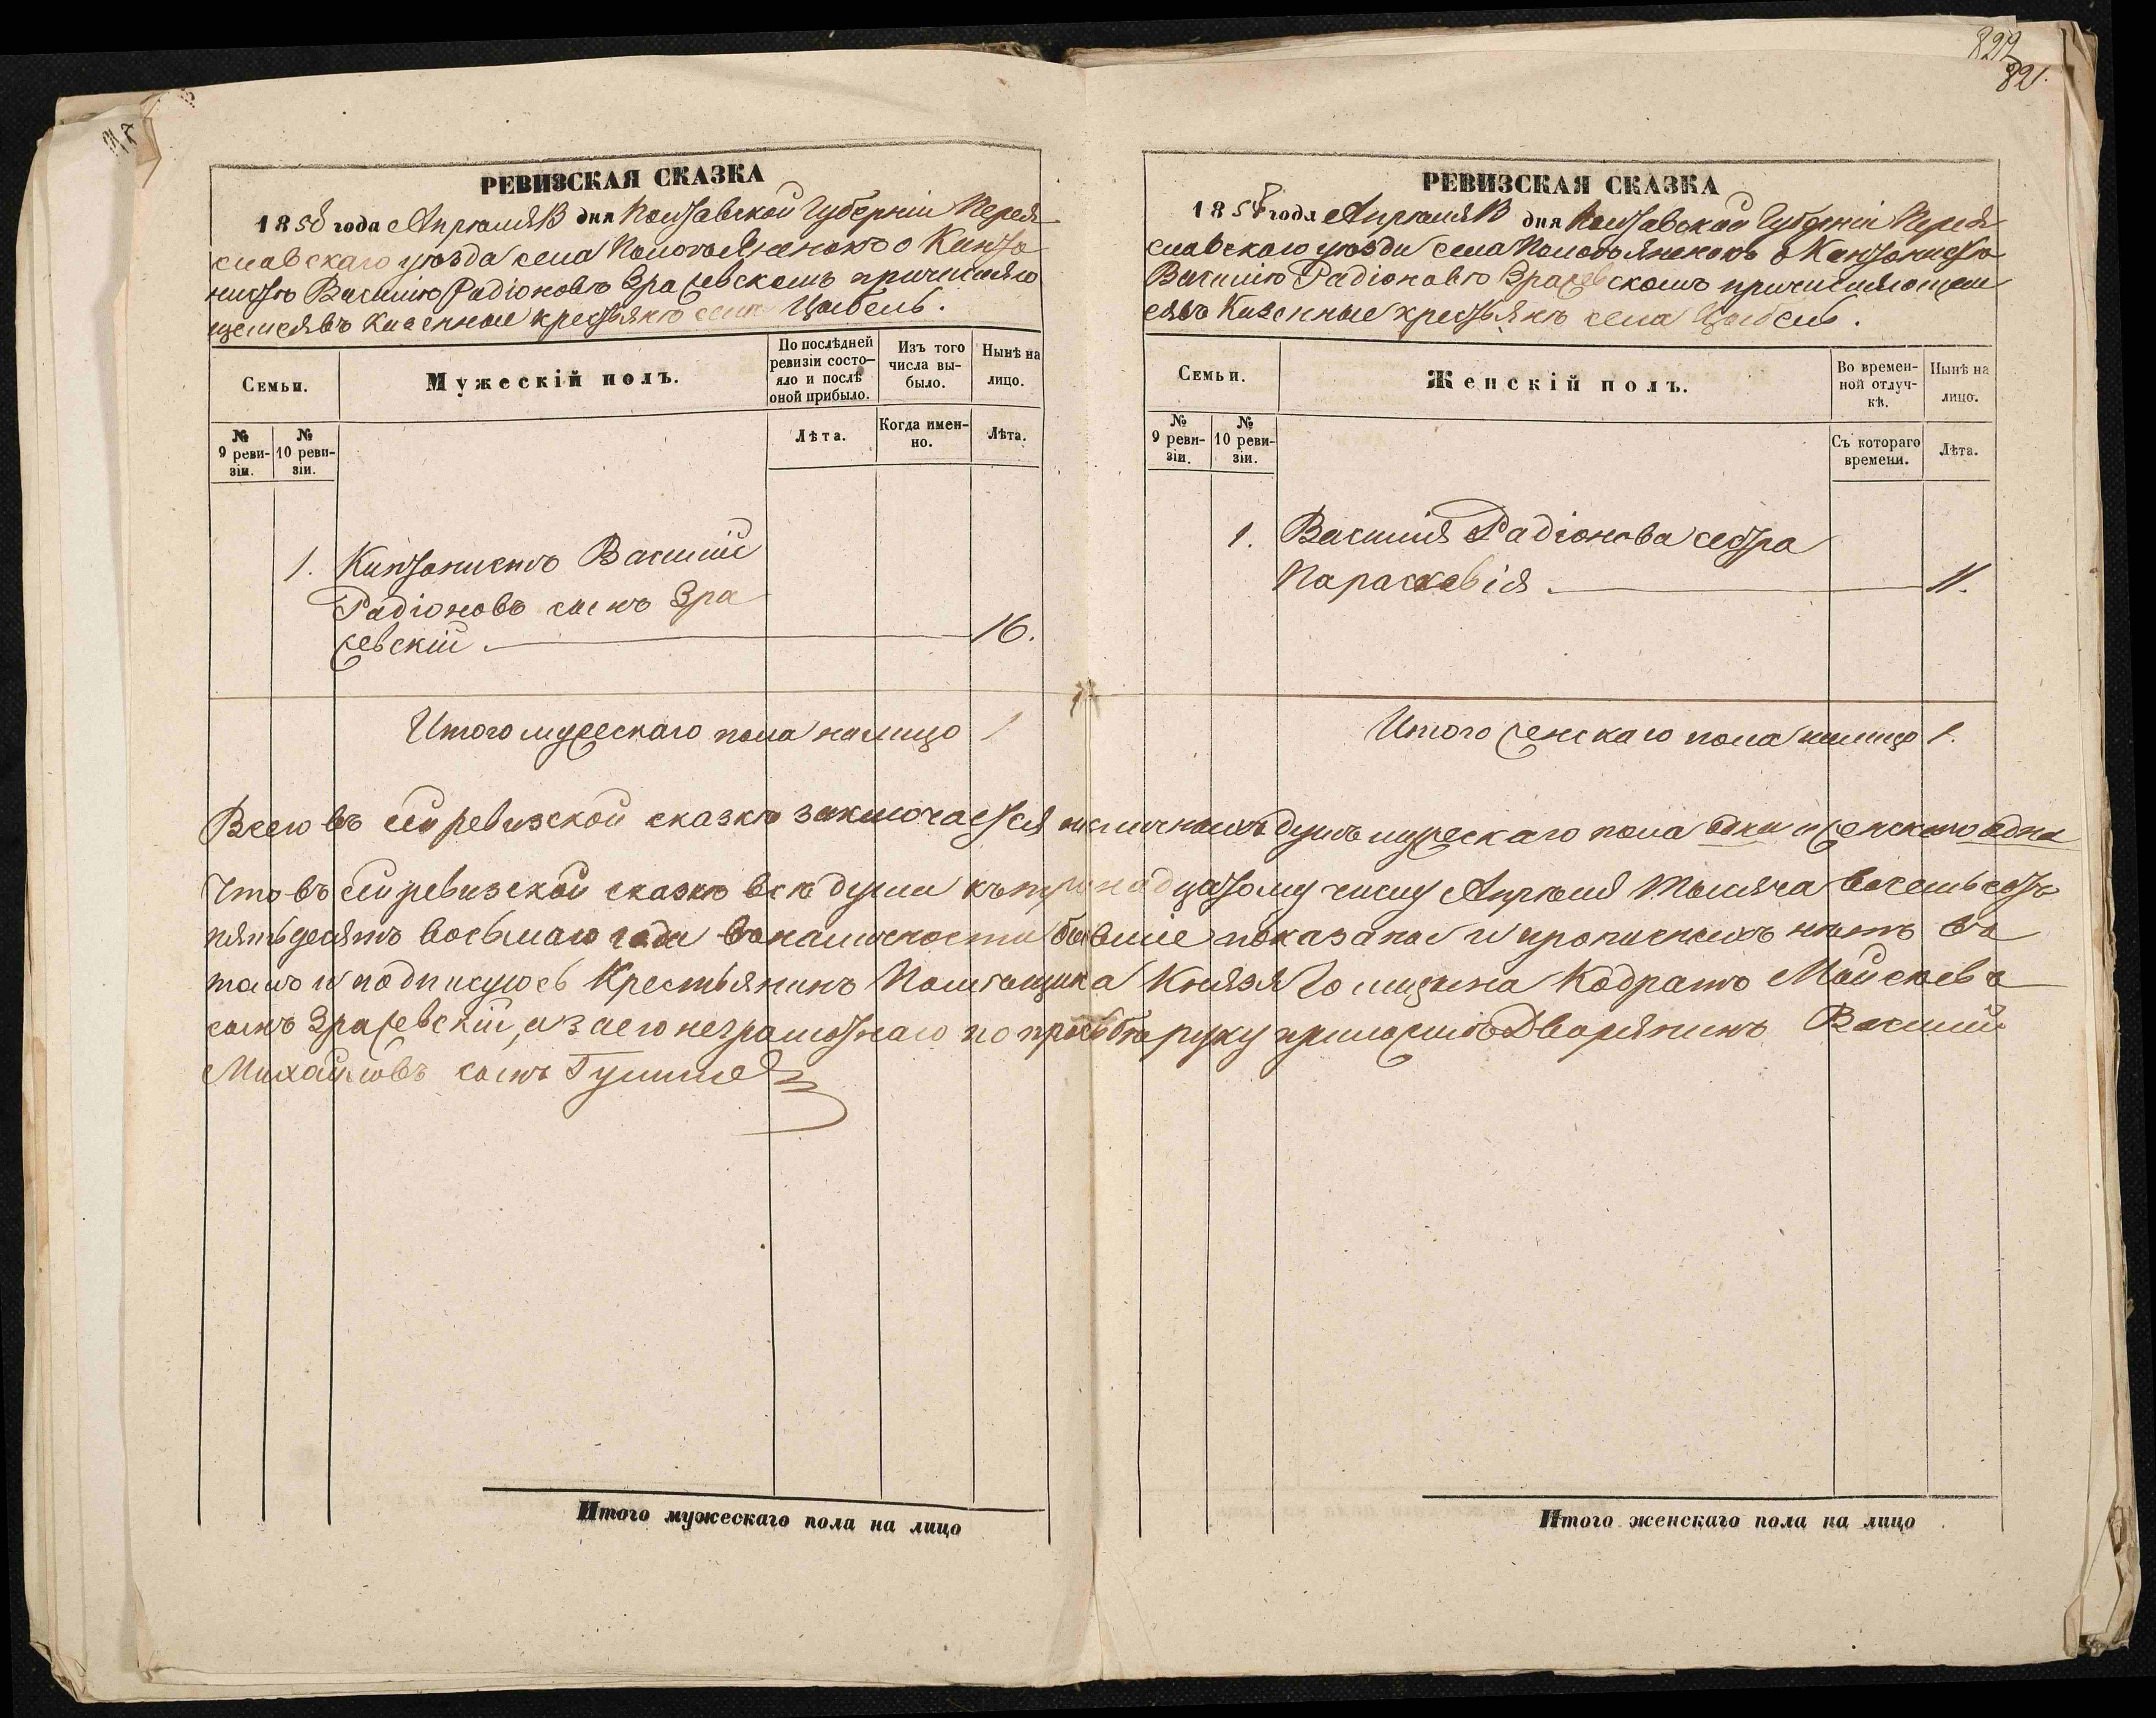 822
821.
РЕВИЗСКАЯ СКАЗКА
1858 года Апрѣля 13 дня Полтавской Губерніи Перея
славскаго уѣзда села Пологъ Яненокъ о Кантo
нистѣ Василію Радіоновѣ Зражевскомъ причисляю
щемся въ Казенные крестьяне села Цыбель.
Семьи.
Мужескій полъ.
По послѣдней ревизіи состояло и послѣ оной прибыло.
Изъ того числа выбыло.
Нынѣ на лицо.
№ 9 ревизіи.
№ 10 ревизіи.
Лѣта.
Когда именно.
Лѣта.
1. Кантонистъ Василій
Радіоновъ сынъ Зра
жевскій. 16.
Итого мужескаго пола налицо 1
РЕВИЗСКАЯ СКАЗКА
1858 года Апрѣля 13 дня Полтавской Губерніи Перея
славскаго уѣзда села Пологъ Яненокъ о Кантонистѣ
Василію Радіоновѣ Зражевскомъ причисляющем
ся въ Казенные крестьяне села Цыбель.
Семьи.
Женскій полъ.
Во временной отлучкѣ.
Нынѣ на лицо.
№ 9 ревизіи.
№ 10 ревизіи.
Съ котораго времени.
Лѣта.
1. Василія Радіонова сестра
Параскевія. 11.
Итого женскаго пола налицо 1.
Всего въ сей ревизской сказкѣ заключается наличныхъ душъ мужескаго пола одна и женскаго одна
Что въ сей ревизской сказкѣ всѣ души къ тринадцатому числу Апрѣля тысяча восемьсотъ
пятьдесятъ восьмаго года въ наличности бывшіе показаны и прописныхъ нѣтъ въ
томъ и подписуюсь Крестьянинъ Помѣщика Князя Голицына Кодратъ Мойсѣевъ
сынъ Зражевскій, а за его неграмотнаго по просьбѣ руку приложилъ Дворянинъ Василій
Михайловъ сынъ
Итого мужескаго пола на лицо
Итого женскаго пола на лицо